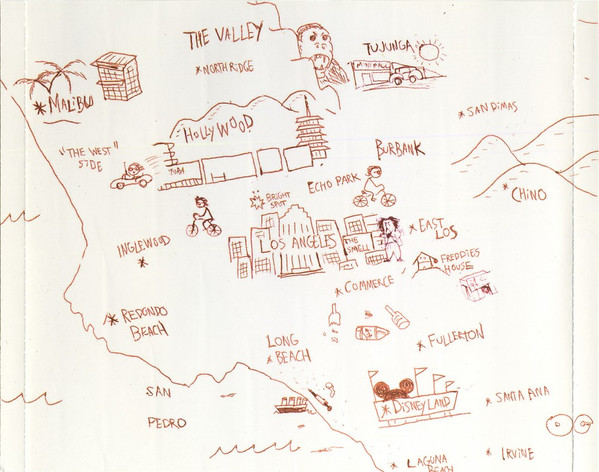 THE VALLEY
* NORTHRIDGE
TUJUNGA
MINI MALL
* MALIBU
HOLLYWOOD
* SAN DIMAS
"THE WEST"
SIDE
BURBANK
ECHO PARK
* CHINO
BRIGHT
SPOT
INGLEWOOD
*
LOS ANGELES
THE
SMELL
* EAST
LOS
FREDDIES
HOUSE
* COMMERCE
* REDONDO
BEACH
LONG
* BEACH
* FULLERTON
SAN
PEDRO
* DISNEYLAND
* SANTA ANA
* IRVINE
* LAGUNA
BEACH